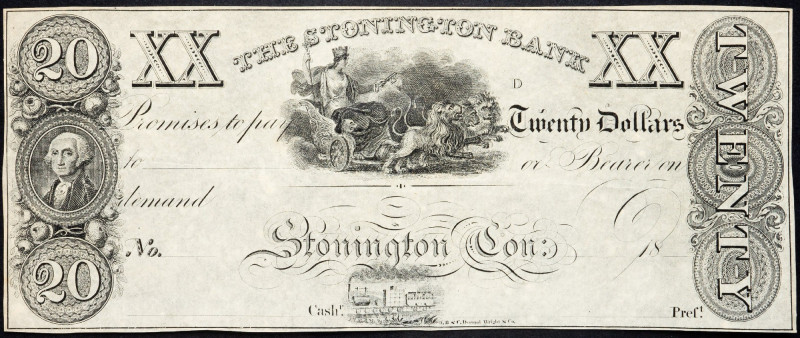 20
XX THE STONINGTON BANK XX
D
Promises to pay Twenty Dollars
to or Bearer on
demand
No. Stonington Con: 18
20
Cashr. Prest.
TWENTY